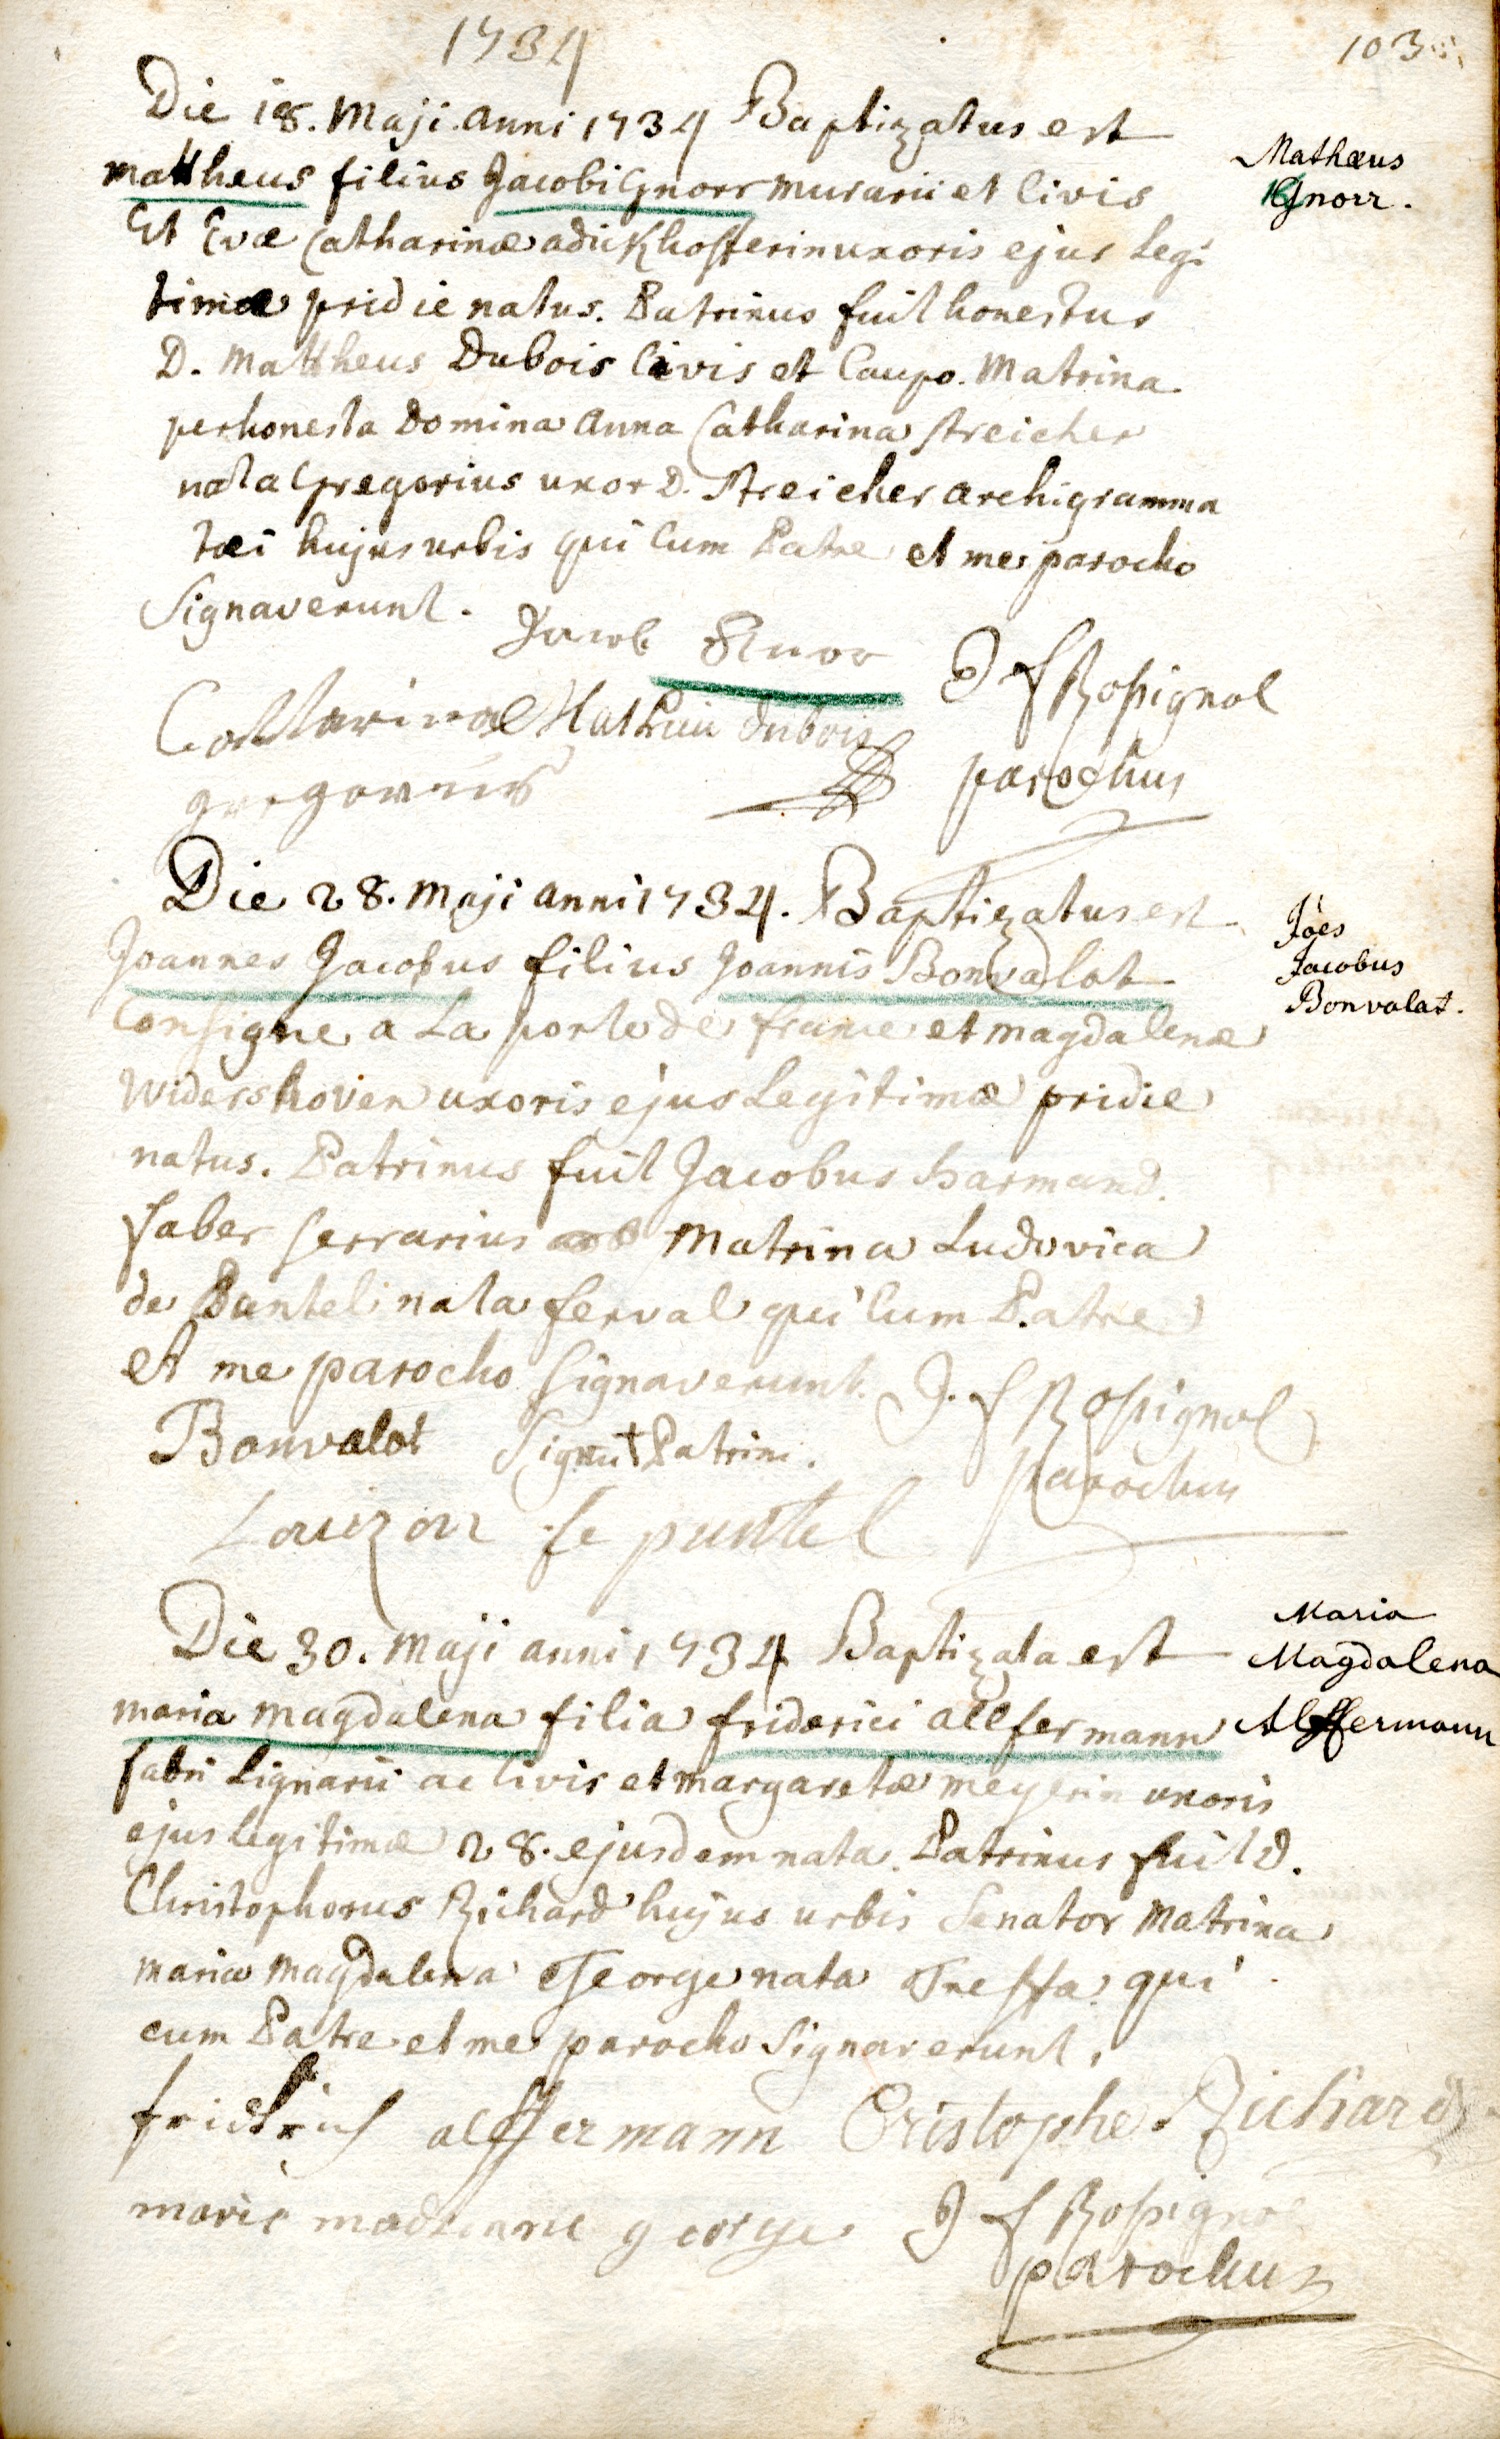 1734
103
Die 18. Maji anni 1734 Baptizatus est
mattheus filius Jacobi Gnorr murarii et Civis
Matheus
Gnorr.
Et Evæ Catharinæ uxoris ejus legi
timæ pridie natus. Patrinus fuit honestus
D. Mattheus Dubois Civis et Caupo. Matrina
perhonesta Domina Anna Catharina streicher
nata Gregorius uxor D. streicher archigramma
tæi hujus urbis qui Cum Patre et me parocho
Signaverunt.
Jacob Knor
J f Rossignol
Catharina Mathieu dubois
gregorius
parochus
Die 28. Maji anni 1734. Baptizatus est
Joannes Jacobus filius Joannis Bonvalot
Jões
Jacobus
Bonvalat.
Consigne a La porte de france et magdalenæ
Widershoven uxoris ejus Legitimæ pridie
natus. Patrinus fuit Jacobus harmand.
faber serrarius Matrina Ludovica
de Puntel nata ferval qui Cum Patre
et me parocho signaverunt.
J. f Rossignol
Bonvalot Signū † Patrini.
parochus
Louizon de puntel
Die 30. Maji anni 1734 Baptizata est
maria magdalena filia friderici allfermann
Maria
Magdalena
Alffermann
fabri Lignarii ac Civis et margaretæ meyerin uxoris
ejus legitimæ 28. ejusdem nata. Patrinus fuit D.
Christophorus Richard hujus urbis Senator Matrina
maria magdalena George nata Treffa qui
cum Patre et me parocho Signaverunt.
fridrich alffermann Cristophe Richard
marie madlenne george J f Rossignol
parochus